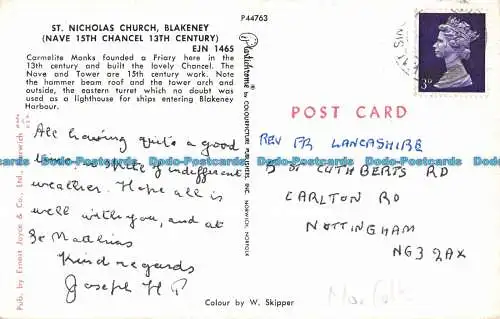 P44763
ST. NICHOLAS CHURCH, BLAKENEY
(NAVE 15TH CHANCEL 13TH CENTURY)
EJN 1465
Carmelite Monks founded a Friary here in the
13th century and built the lovely Chancel. The
Nave and Tower are 15th century work. Note
the hammer beam roof and the tower arch and
outside, the eastern turret which no doubt was
used as a lighthouse for ships entering Blakeney
Harbour.
All having quite a good
time, in spite of indifferent
weather. Hope all is
well with you, and at
St Matthias
Kind regards
Joseph H P
Pub. by Ernest Joyce & Co., Ltd., Norwich
Plastichrome
® by COLOURPICTURE PUBLISHERS, INC. NORWICH, NORFOLK
3D
POST CARD
REV FR LANCASHIRE
ST CUTHBERTS RD
CARLTON RD
NOTTINGHAM
NG3 2AX
Colour by W. Skipper
Dodo-Postcards Dodo-Postcards Dodo-Postcards Dodo-Postcards